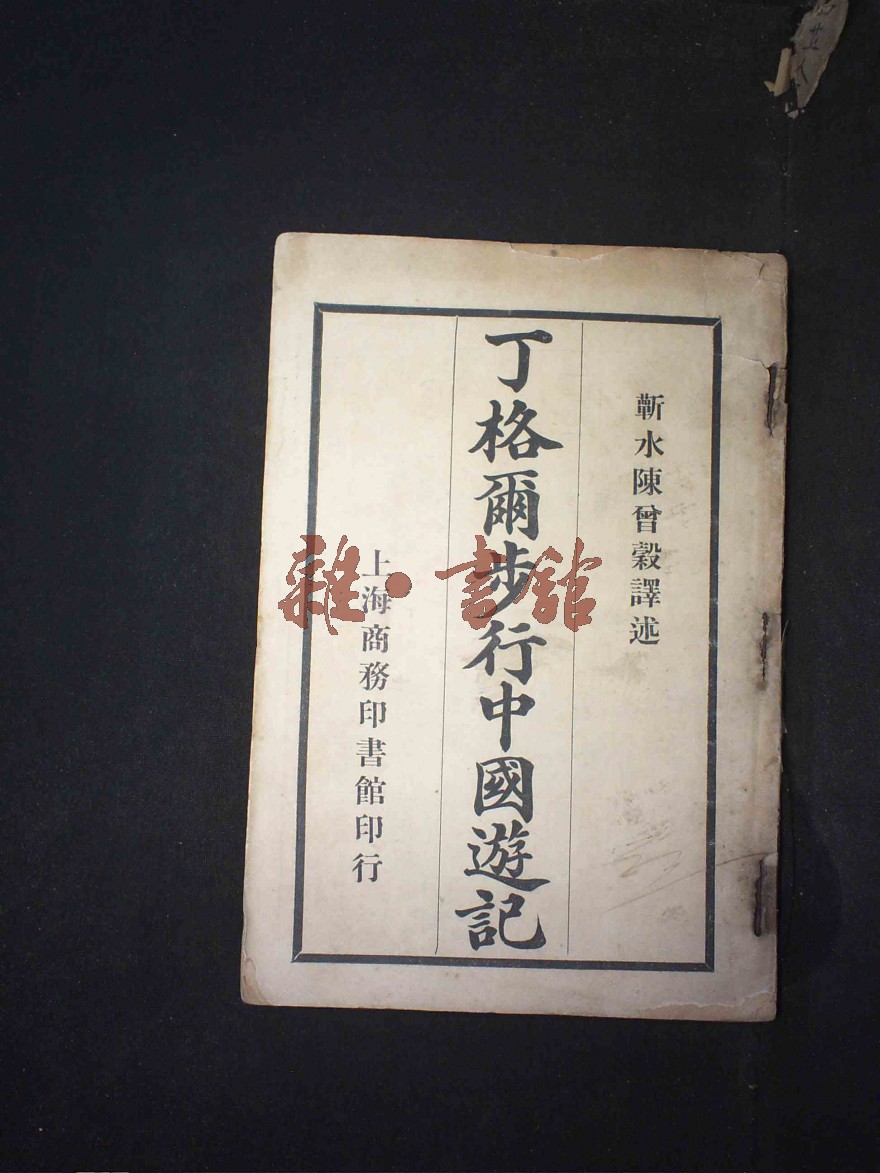 蘄水陳曾穀譯述
丁格爾步行中國遊記
上海商務印書館印行
雜·書館